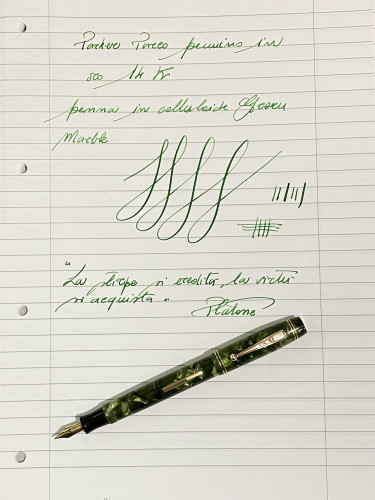 pennino in
14 K
penna in celluloide Green
Marble
"La stirpe si eredita, la virtù
si acquista"
Platone